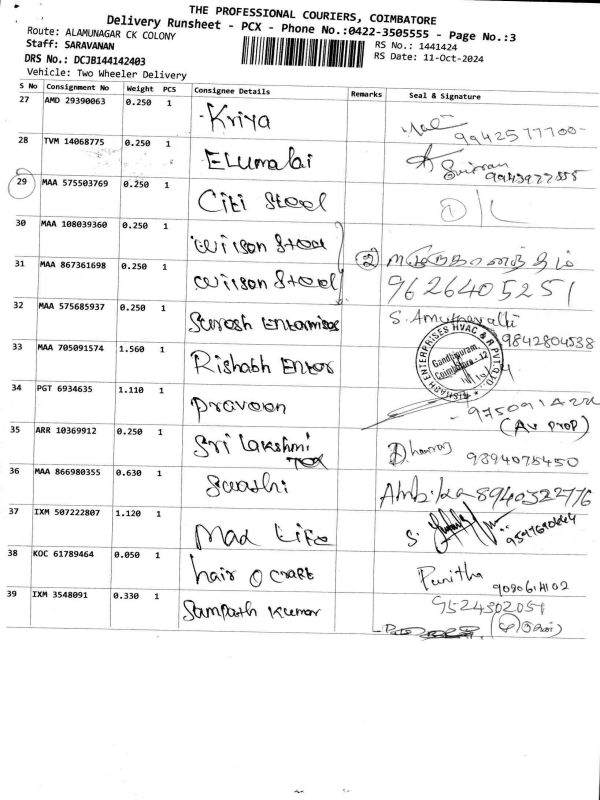 THE PROFESSIONAL COURIERS, COIMBATORE
Delivery Runsheet - PCX - Phone No.:0422-3505555 - Page No.:3
Route: ALAMUNAGAR CK COLONY
Staff: SARAVANAN
RS No.: 1441424
DRS No.: DCJB144142403
RS Date: 11-Oct-2024
Vehicle: Two Wheeler Delivery
S No Consignment No Weight PCS Consignee Details Remarks Seal & Signature
27 AMD 29390063 0.250 1 Kriya 9942577700
28 TVM 14068775 0.250 1 Elumalai
29 MAA 575503769 0.250 1 Citi Steel D/L
30 MAA 108039360 0.250 1 Wilson Steel
31 MAA 867361698 0.250 1 Wilson Steel 2 9626405251
32 MAA 575685937 0.250 1 Suresh Enterprises S. Amuthavalli 9842804538
33 MAA 705091574 1.560 1 Rishabh Enter
RISHABH ENTERPRISES HVAC & R PVT.
Gandhipuram
Coimbatore - 12
34 PGT 6934635 1.110 1 Praveen
35 ARR 10369912 0.250 1 Sri Lakshmi Tex Dhanraj 9894075450
36 MAA 866980355 0.630 1 Swathi Ambika 8940322776
37 IXM 507222807 1.120 1 Mad Life S.
38 KOC 61789464 0.050 1 hair O craft Punitha
39 IXM 3548091 0.330 1 Sampath Kumar 9524302051